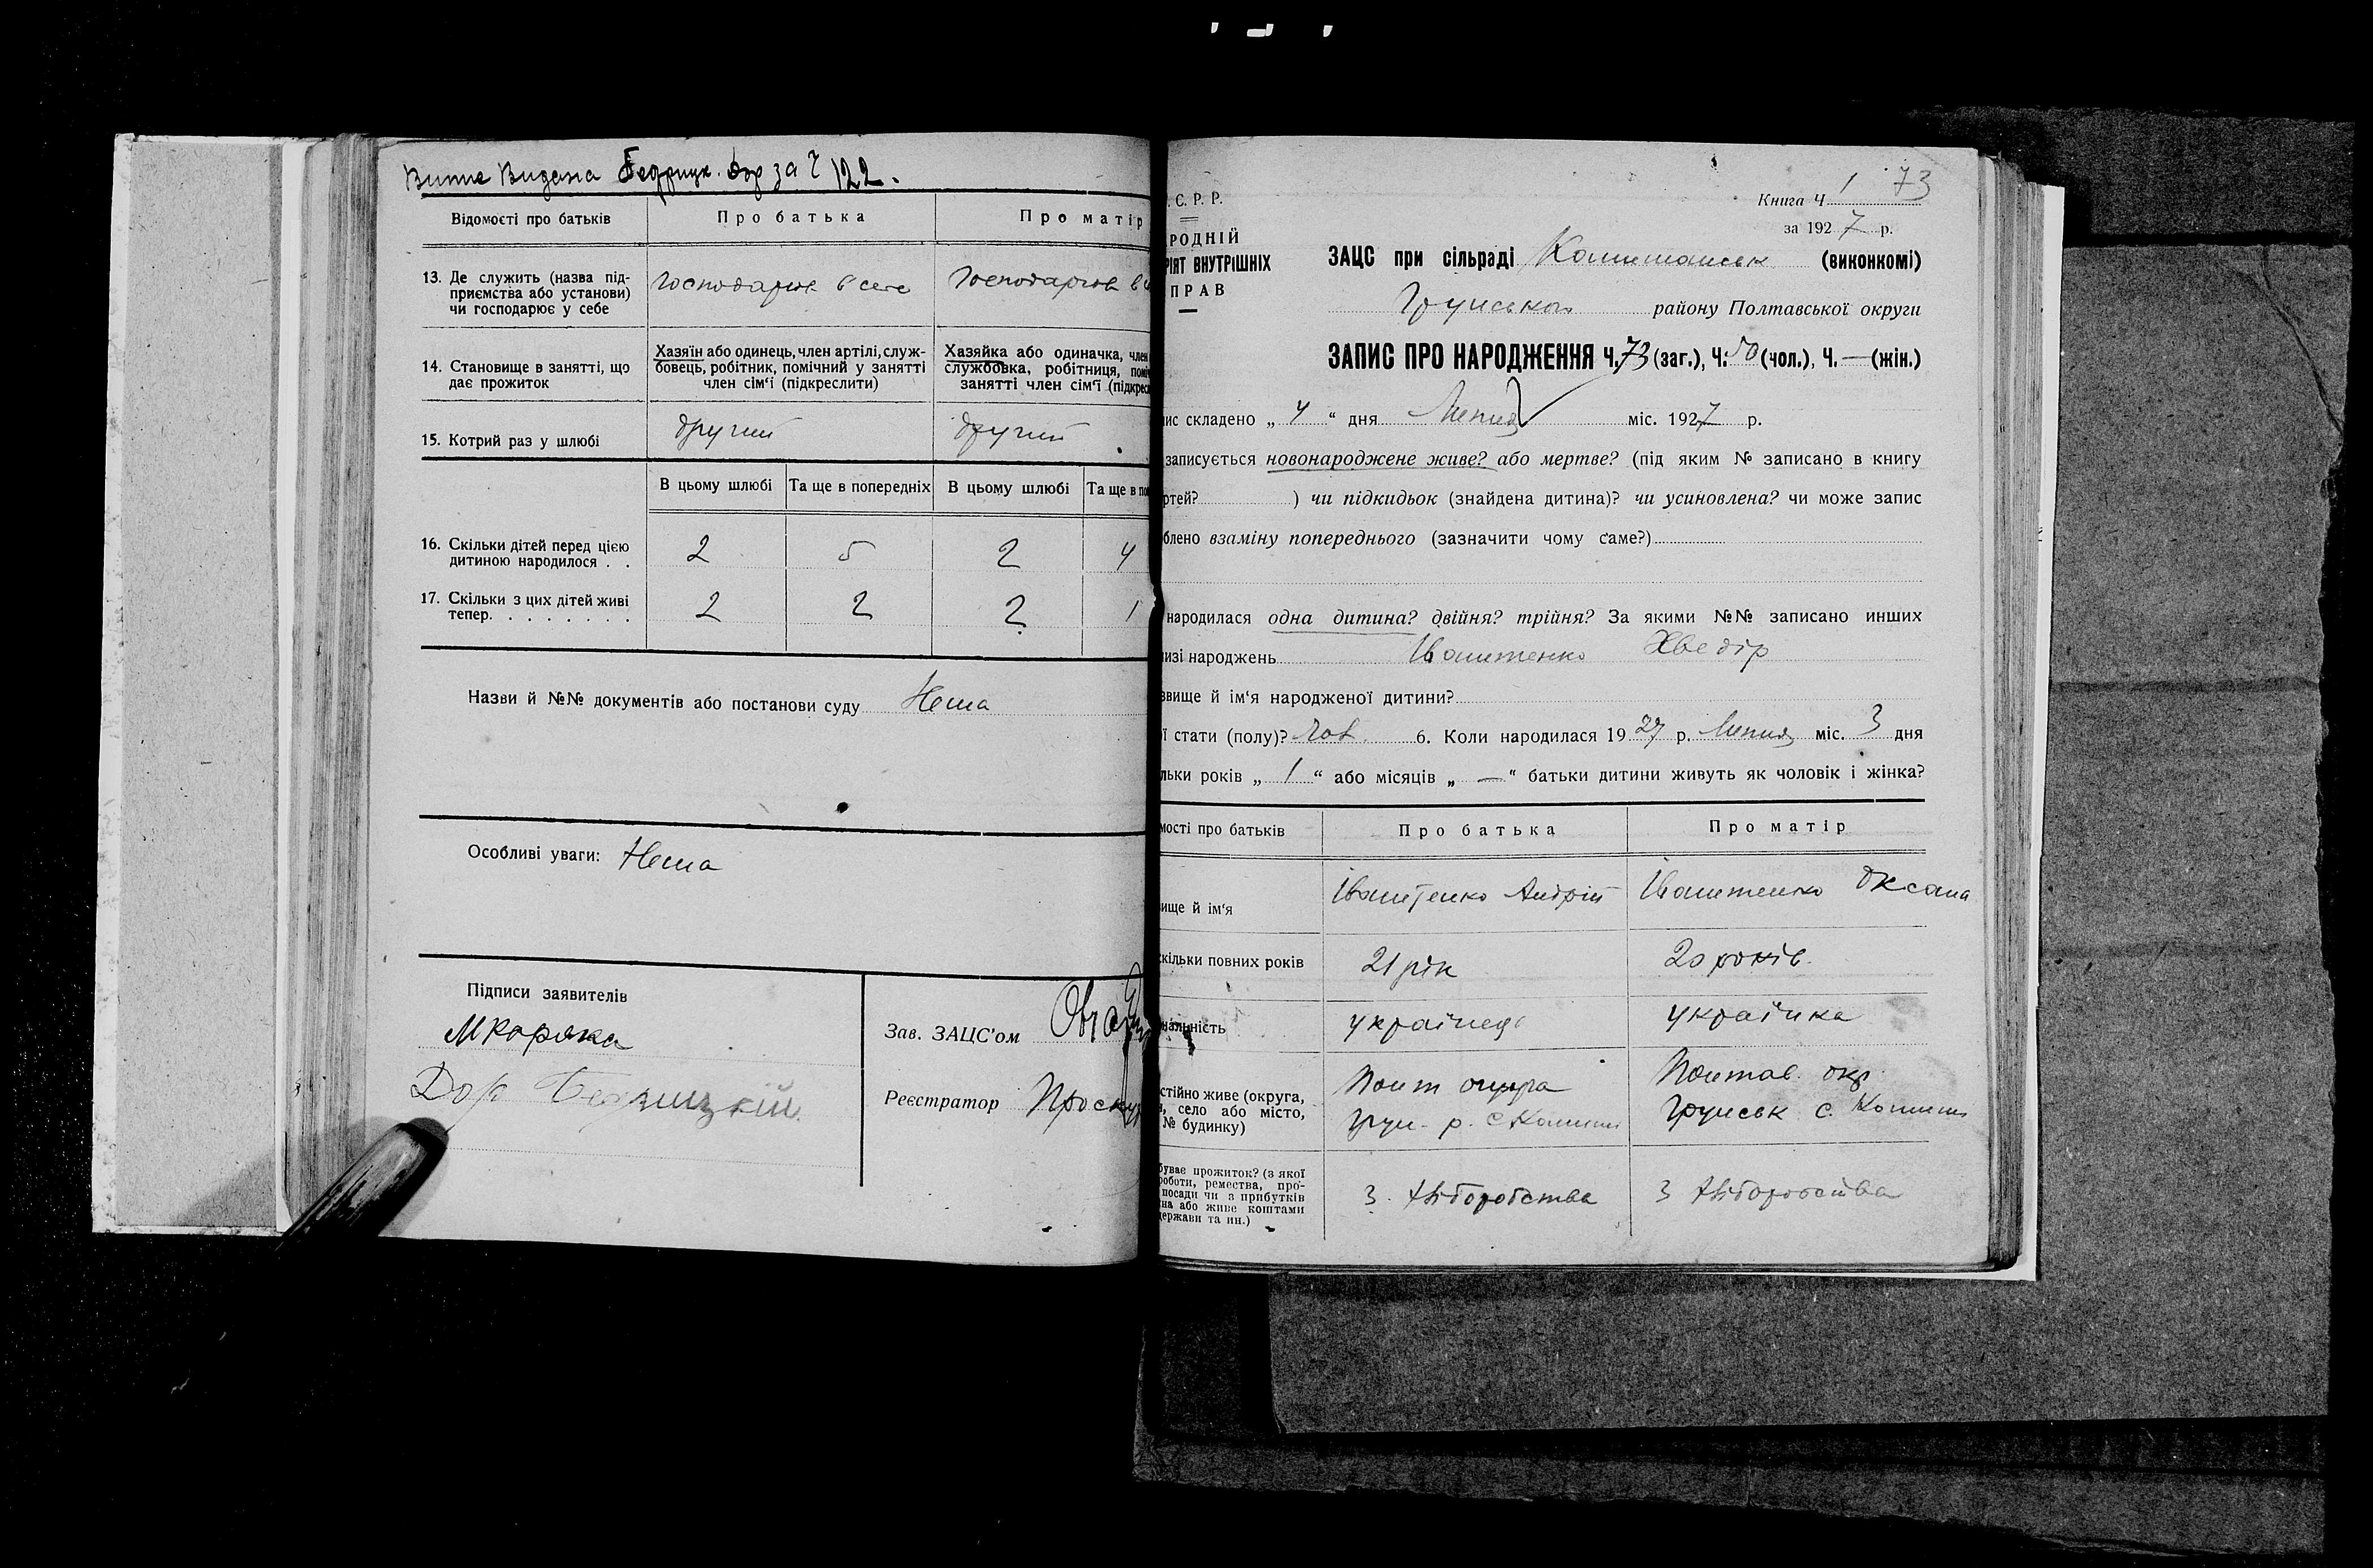 Випис Видана Бедрицк. Дор за Ч 122.
Відомості про батьків
Про батька
Про матір
13. Де служить (назва під-
приємства або установи)
чи господарює у себе
Господарює в себе
Господарює в
14. Становище в занятті, що
дає прожиток
Хазяїн або одинець, член артілі, служ-
бовець, робітник, помічний у занятті
член сім'ї (підкреслити)
Хазяйка або одиначка, член
службовка, робітниця, помі
занятті член сім'ї (підкрес
15. Котрий раз у шлюбі
другий
другий
В цьому шлюбі
Та ще в попередніх
В цьому шлюбі
Та ще в по
16. Скільки дітей перед цією
дитиною народилося . .
2 5 2 4
17. Скільки з цих дітей живі
тепер. . . . . . . .
2 2 2 1
Назви й №№ документів або постанови суду Нема
Особливі уваги: Нема
Підписи заявителів
М Коряка
Дор Бедрицкій
Зав. ЗАЦС'ом
Реєстратор Проску
. С. Р. Р.
РОДНІЙ
РІЯТ ВНУТРІШНІХ
ПРАВ
Книга Ч. 1 73
за 1927 р.
ЗАЦС при сільраді (виконкомі)
Грунського району Полтавської округи
ЗАПИС ПРО НАРОДЖЕННЯ Ч. 73 (заг.), Ч. 50 (чол.), Ч. — (жін.)
ис складено „ 4 “ дня Липня міс. 1927 р.
записується новонароджене живе? або мертве? (під яким № записано в книгу
ртей? ) чи підкидьок (знайдена дитина)? чи усиновлена? чи може запис
блено взаміну попереднього (зазначити чому саме?)
народилася одна дитина? двійня? трійня? За якими №№ записано инших
изі народжень Іваштенко Хведір
звище й ім'я народженої дитини?
ї стати (полу)? чол. 6. Коли народилася 1927 р. Липня міс. 3 дня
льки років „ 1 “ або місяців „ — “ батьки дитини живуть як чоловік і жінка?
мості про батьків
Про батька
Про матір
вище й ім'я
Іваштенко Андрій
Іваштенко Оксана
кільки повних років
21 рік
20 років
нальність
українець
українка
стійно живе (округа,
н, село або місто,
№ будинку)
Полт округа
Грун. р. с Комиши
Полтав. окр.
Грунськ с. Комиши
буває прожиток? (з якої
роботи, ремества, про-
посади чи з прибутків
на або живе коштами
держави та ин.)
З хліборобства
З хліборобства